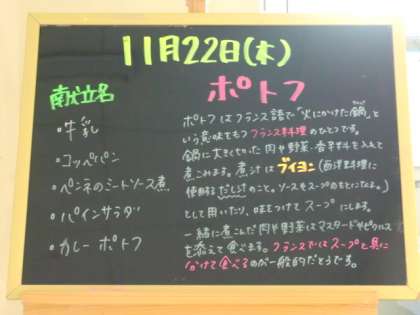 11月22日(木)
献立名
・牛乳
・コッペパン
・ペンネのミートソース煮
・パインサラダ
・カレーポトフ
ポトフ
ポトフはフランス語で「火にかけた鍋」と
いう意味をもつフランス料理のひとつです。
鍋に大きく切った肉や野菜・香辛料を入れて
煮こみます。煮汁はブイヨン(西洋料理に
使用するだし汁のこと。ソースやスープのもとになるよ。)
として用いたり、味をつけてスープにします。
一緒に煮こんだ肉や野菜はマスタードやピクルス
を添えて食べます。フランスではスープと具に
分けて食べるのが一般的だそうです。